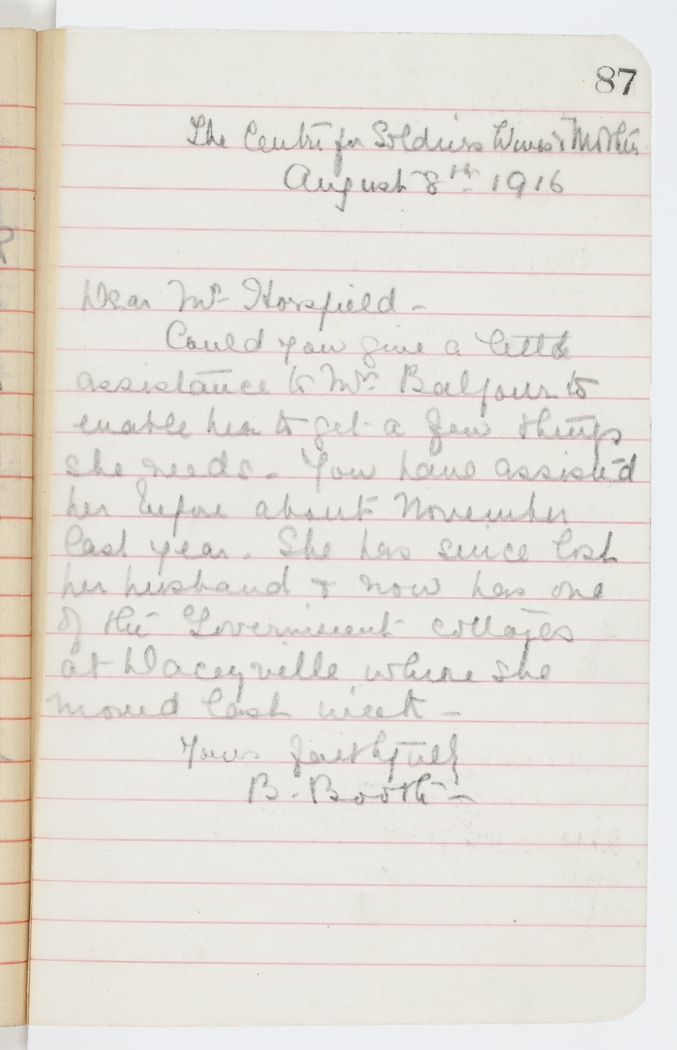 87
The Centre for Soldiers Wives & Mothers
August 8th 1916
Dear Mr Horsfield -
Could you give a little
assistance to Mrs Balfour to
enable her to get a few things
she needs. You have assisted
her before about November
last year. She has since lost
her husband & now has one
of the Government cottages
at Daceyville where she
moved last week -
Yours faithfully
B. Booth -